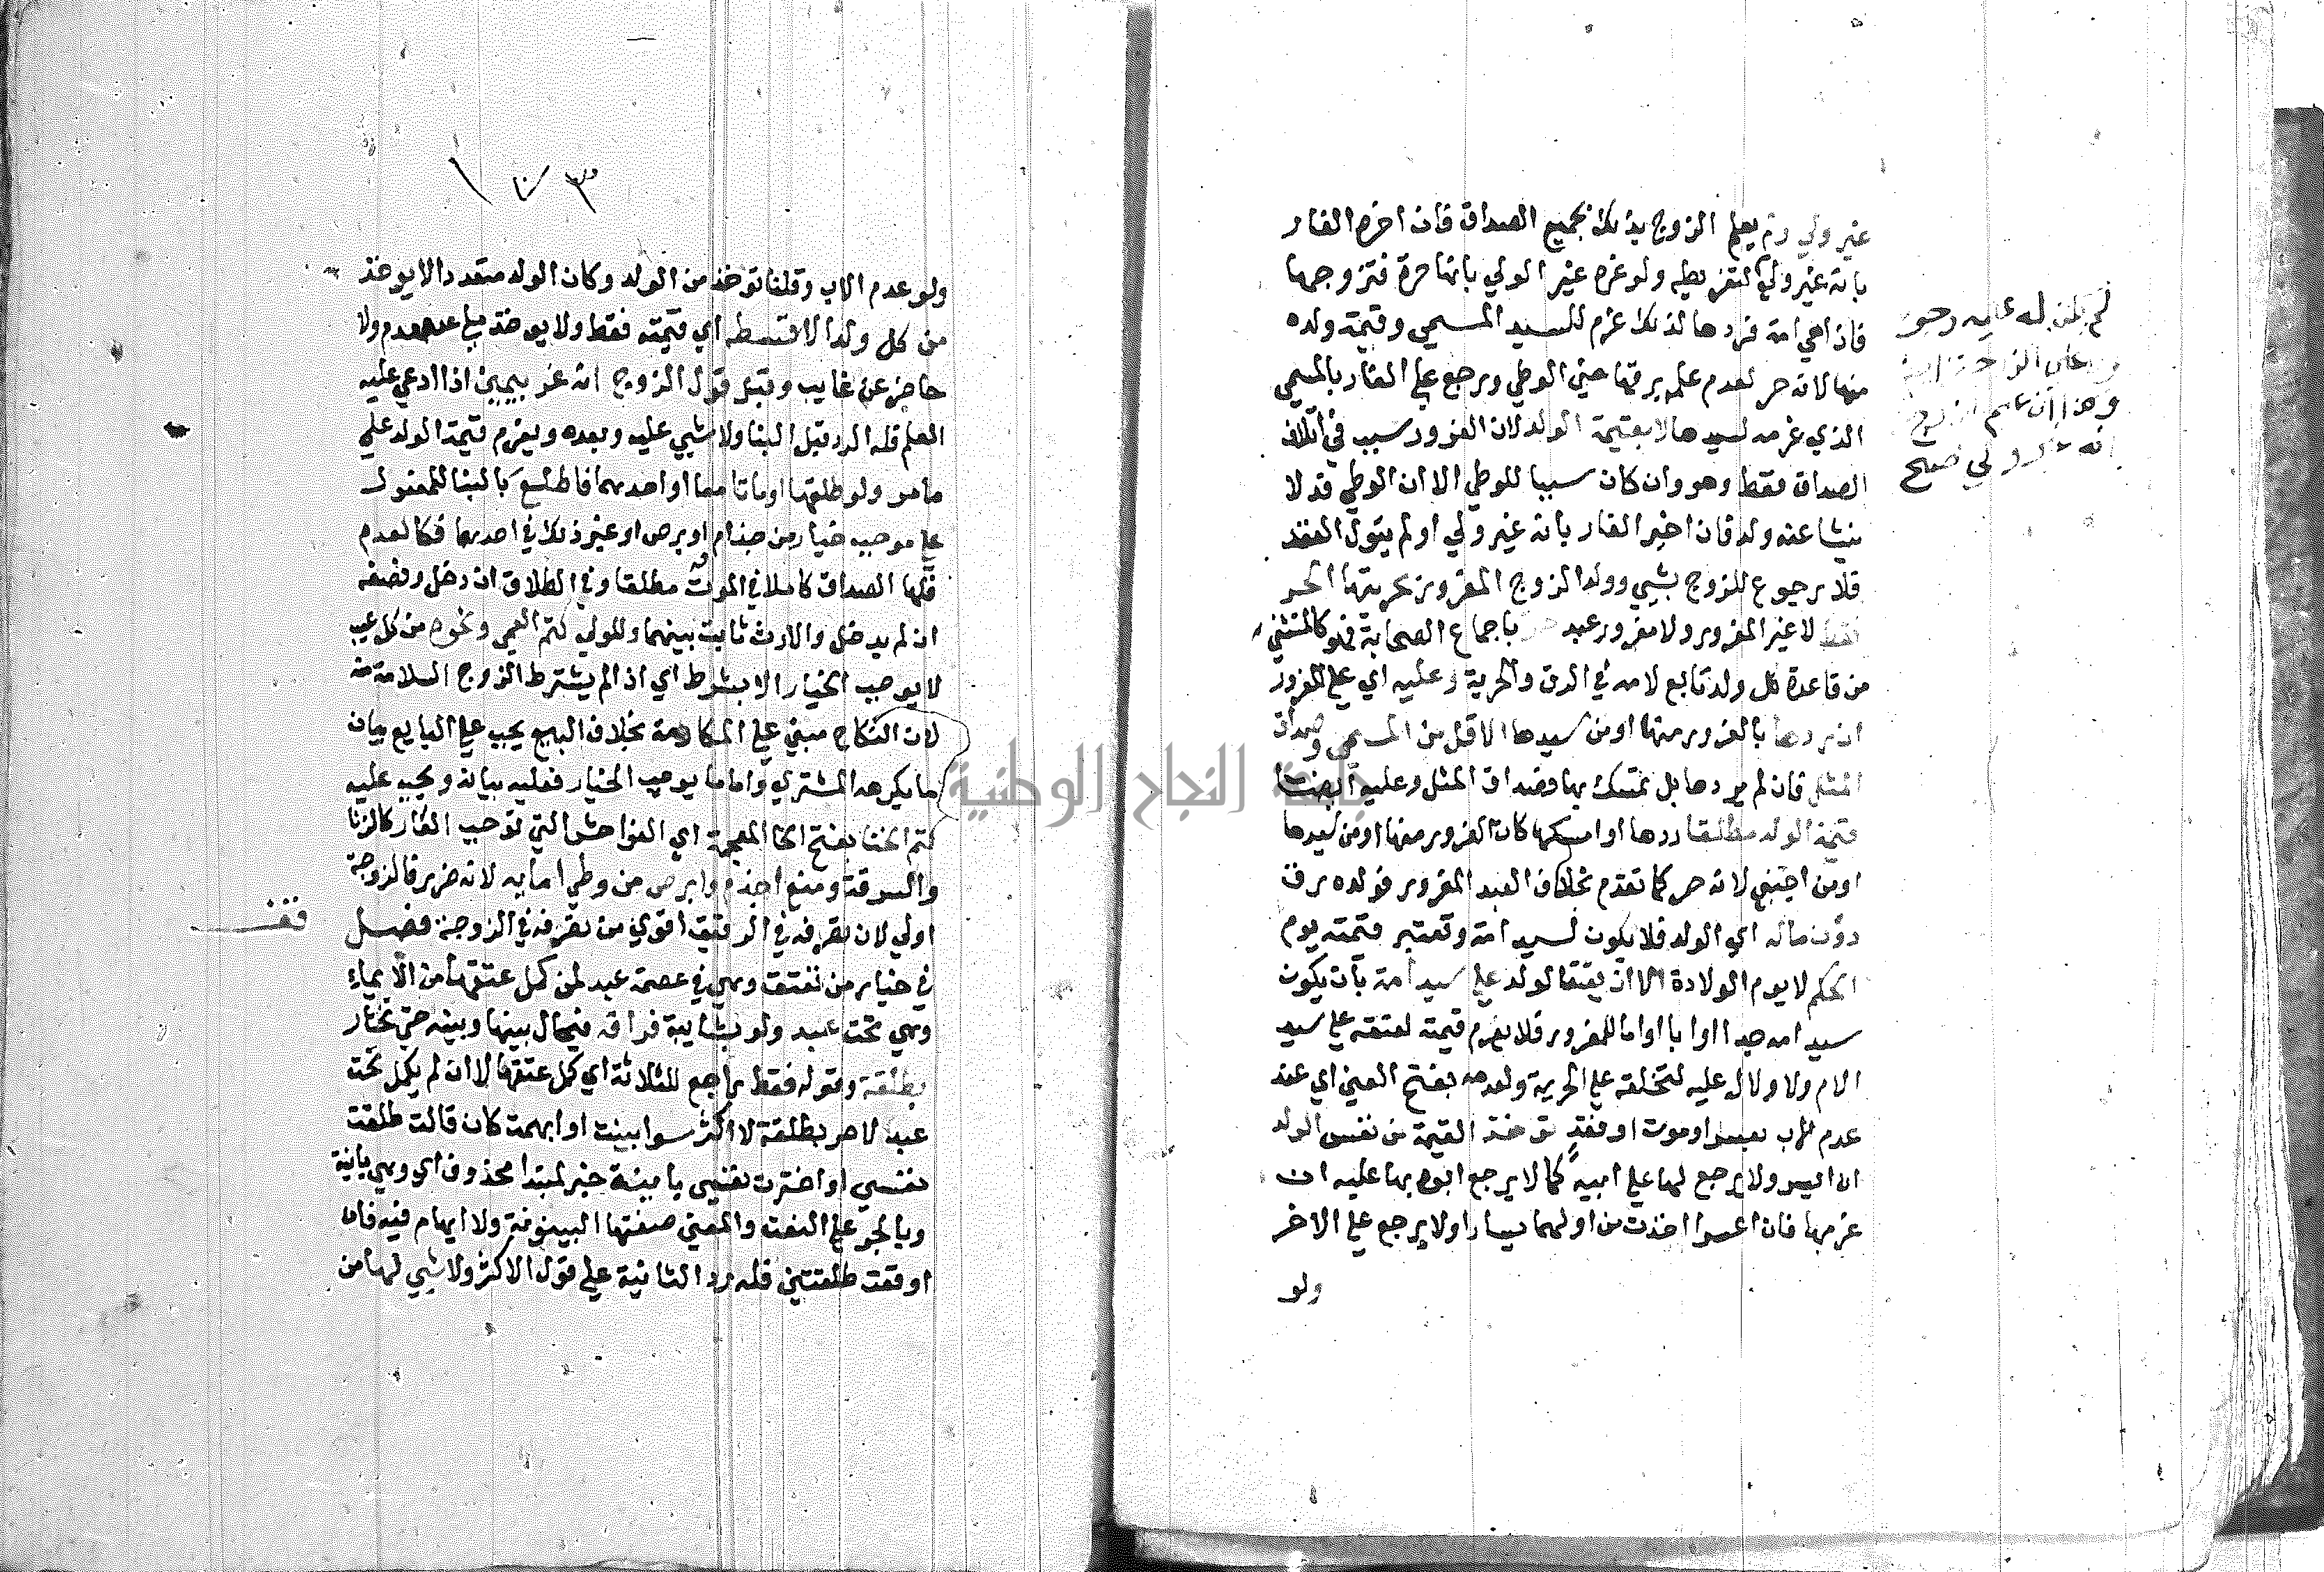 غير ولي ولم يعلم الزوج بذلك بجميع الصداق فان اخبره الغار
بانه غير ولي لتفريطه ولو غره غير الولي بانها حرة فتزوجها
فاذا هي امة فردها لذلك غرم للسيد المسمى وقيمة ولده
منها لانه حر لعدم علمه برقها حين الوطي ويرجع على الغار بالمسمى
الذي غرمه لسيدها لا بقيمة الولد لان الغرور سبب في اتلاف
الصداق فقط وهو وان كان سببا للوطي الا ان الوطي قد لا
ينشا عنه ولد فان اخبر الغار بانه غير ولي او لم يتول العقد
فلا رجوع للزوج بشي وولد الزوج المغرور بحريتها الحر
فقط لا غير المغرور ولا مغرور عبد باجماع الصحابة فهو كالمستثني
من قاعدة كل ولد تابع لامه في الرق والحرية وعليه اي على المغرور
ان ردها بالغرور منها او من سيدها الاقل من المسمى وصداق
المثل فان لم يردها بل تمسك بها فصداق المثل وعليه ايضا
قيمة الولد مطلقا ردها او امسكها كان الغرور منها او من سيدها
او من اجنبي لانه حر كما تقدم بخلاف العبد المغرور فولده رق
دون ماله اي الولد فلا يكون لسيد امه وتعتبر قيمته يوم
الحكم لا يوم الولادة الا ان يعتق الولد على سيد امه بان يكون
سيد امه جدا او ابا او اما للمغرور فلا يغرم قيمته لعتقه على سيد
الام ولا ولا له عليه لتخلقه على الحرية ولعدمه بفتح العين اي عند
عدم الاب بعسر او موت او فقد توخذ القيمة من نفس الولد
ان ايسر ولا يرجع بها على ابيه كما لا يرجع ابوه بها عليه ان
غرمها فان اعسرا اخذت من اولهما يسارا ولا يرجع على الاخر
ولو
لم يكن له عليه رجوع
وهذا ان علم الزوج
انه غير ولي صح
١٠٣
ولو عدم الاب وقلنا توخذ من الولد وكان الولد متعددا لا يوخذ
من كل ولد الا قسطه اي قيمته فقط ولا يوخذ مليء عن معدم ولا
حاضر عن غايب وقبل قول الزوج انه غر بيمين اذا ادعي عليه
العلم فله الرد قبل البنا ولا شي عليه وبعده ويغرم قيمة الولد على
ما مر ولو طلقها او ماتا معا او احدهما فاطلع بالبنا للمفعول
على موجب خيار من جذام او برص او غير ذلك في احدهما فكالعدم
فلها الصداق كاملا في الموت مطلقا وفي الطلاق ان دخل ونصفه
ان لم يدخل والارث ثابت بينهما وللولي كتم العمي ونحوه من كل عيب
لا يوجب الخيار الا بشرط اي اذا لم يشترط الزوج السلامة منه
لان النكاح مبني على المكارمة بخلاف البيع يجب على البايع بيان
ما يكرهه المشتري واما ما يوجب الخيار فعليه بيانه ويجب عليه
كتم الخنا بفتح الخا المعجمة اي الفواحش التي توجب العار كالزنا
والسرقة ومنع اجذم وابرص من وطي امايه لانه ضرر فالزوجة
اولي لان تصرفه في الرقيق اقوي من تصرفه في الزوجة فصل
في خيار من تعتق وهي في عصمة عبد لمن كمل عتقها من الاماء
وهي تحت عبد ولو بشايبة فراقه فيحال بينها وبينه حتى تختار
بطلقة وقوله فقط راجع للثلاثة اي كمل عتقها لا ان لم يكمل تحت
عبد لا حر بطلقة لا اكثر سوا بينت او ابهمت كان قالت طلقت
نفسي او اخترت نفسي باينة خبر لمبتدا محذوف اي وهي باينة
وبالجر على النعت والمعني صفتها البينونة ولا ابهام فيه فان
اوقعت طلقتين فله رد الثانية على قول الاكثر ولا شي لها من